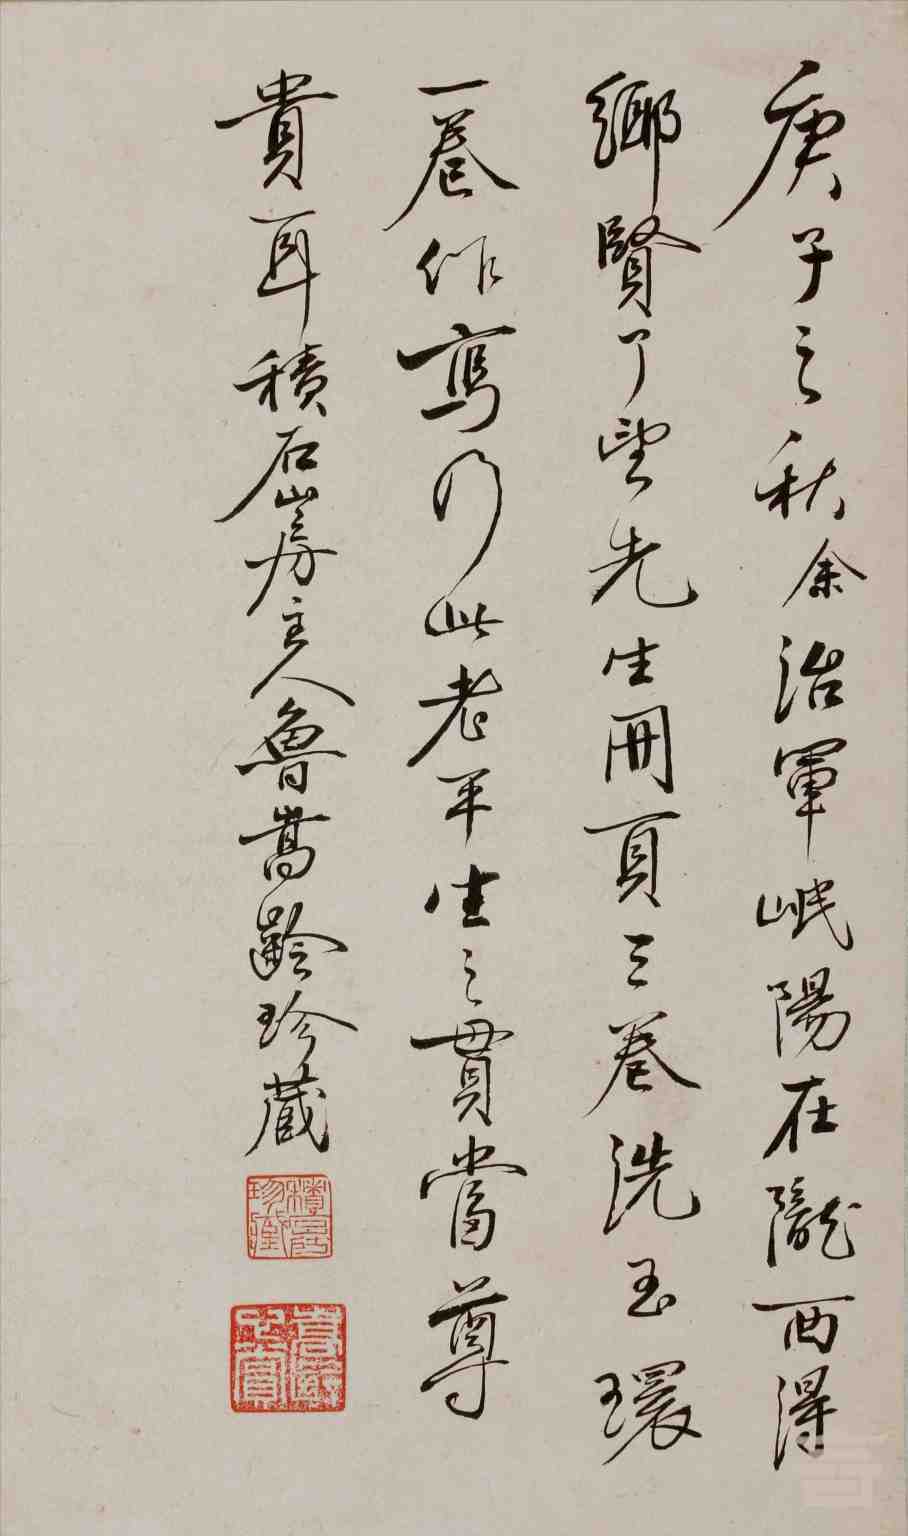 庚子之秋余治軍岷陽在隴西得
鄉賢了望先生冊頁三卷洗玉環
一卷作寫乃此老平生之貫當尊
貴耳積石山房主人魯嵩齡珍藏